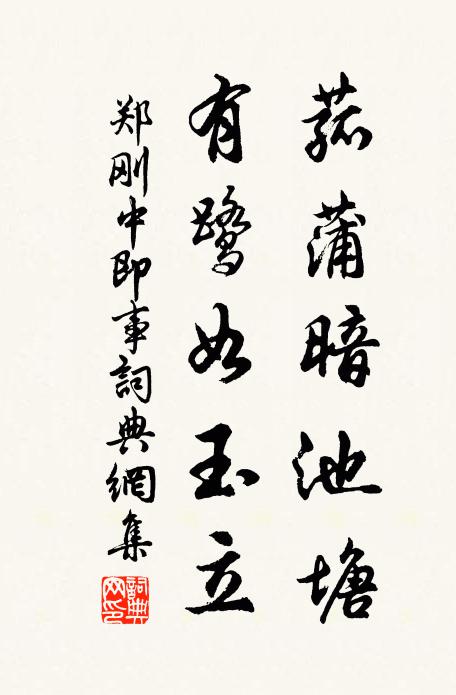 菰蒲暗池塘
有鹭如玉立
郑刚中即事詞典網集
詞典网印